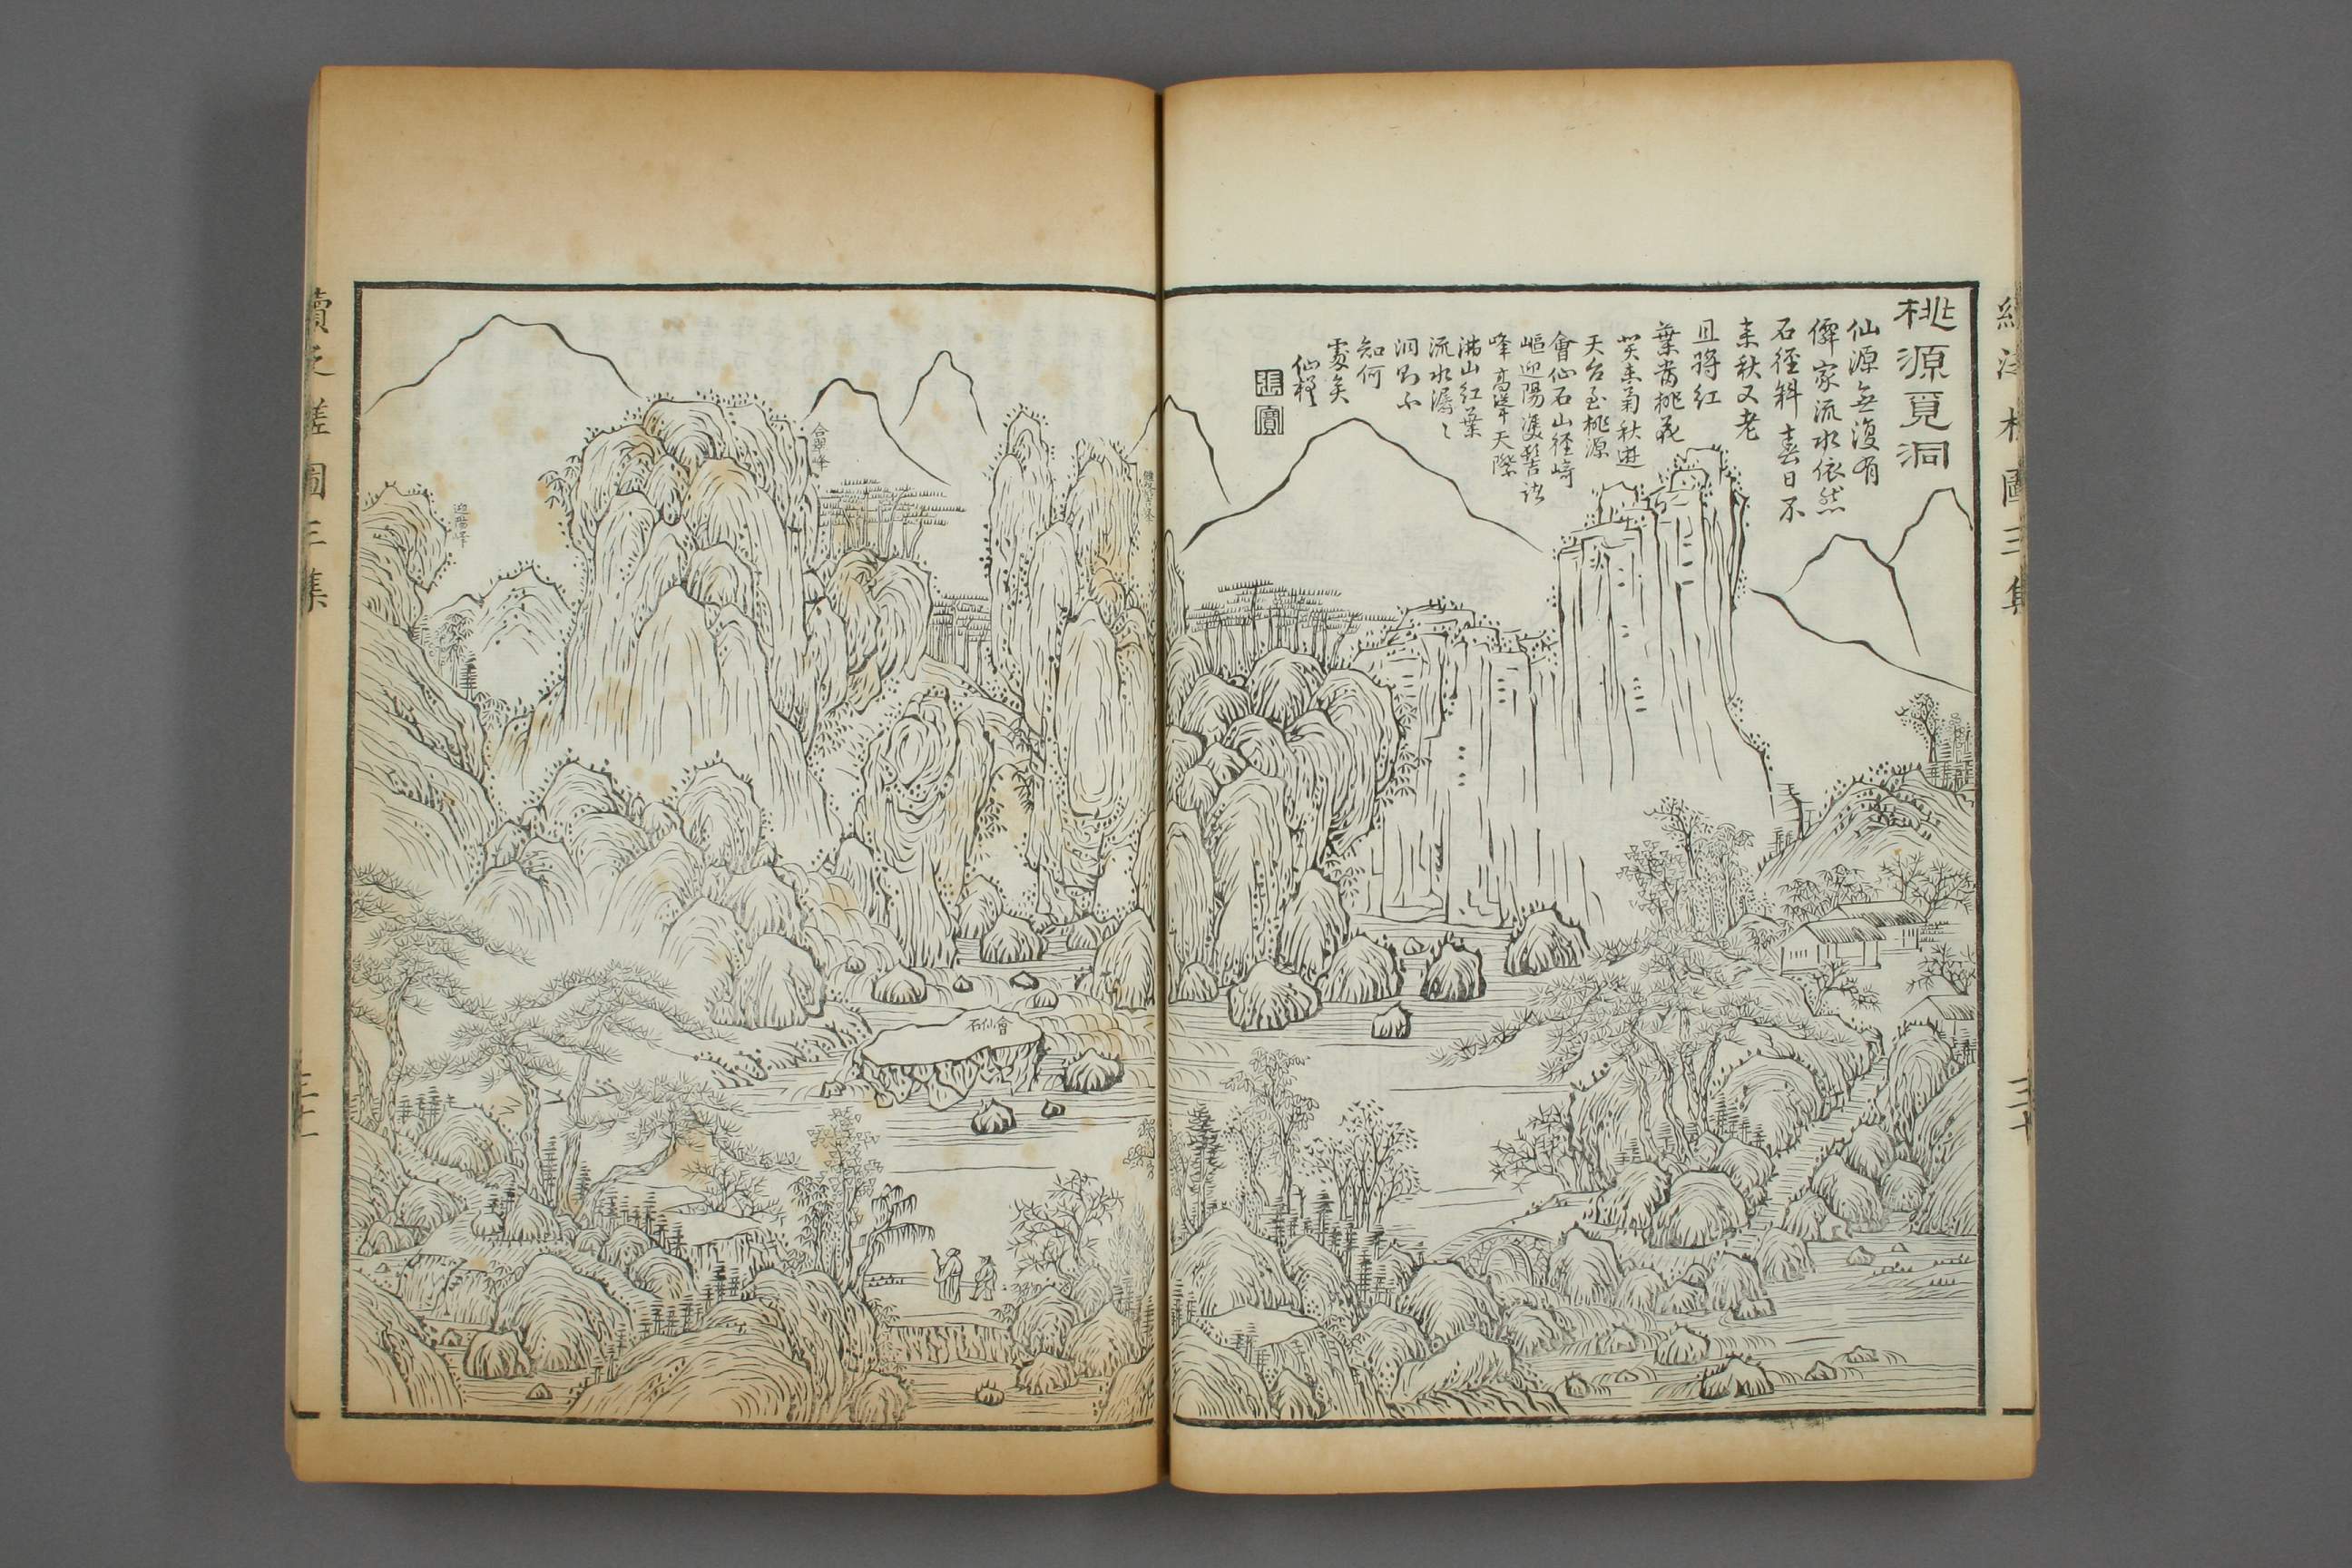 桃源覓洞
仙源無復有
僊家流水依然
石徑斜春日不
来秋又老
且將紅
葉當桃花
癸未菊秋遊
天台至桃源
會仙石山徑崎
嶇迎陽雙髻諸
峰高逼天際
滿山紅葉
流水潺々
洞則不
知何
處矣
仙槎
張寶
合翠峰
迎陽峰
會仙石
續泛槎圖三集
三十
續泛槎圖三集